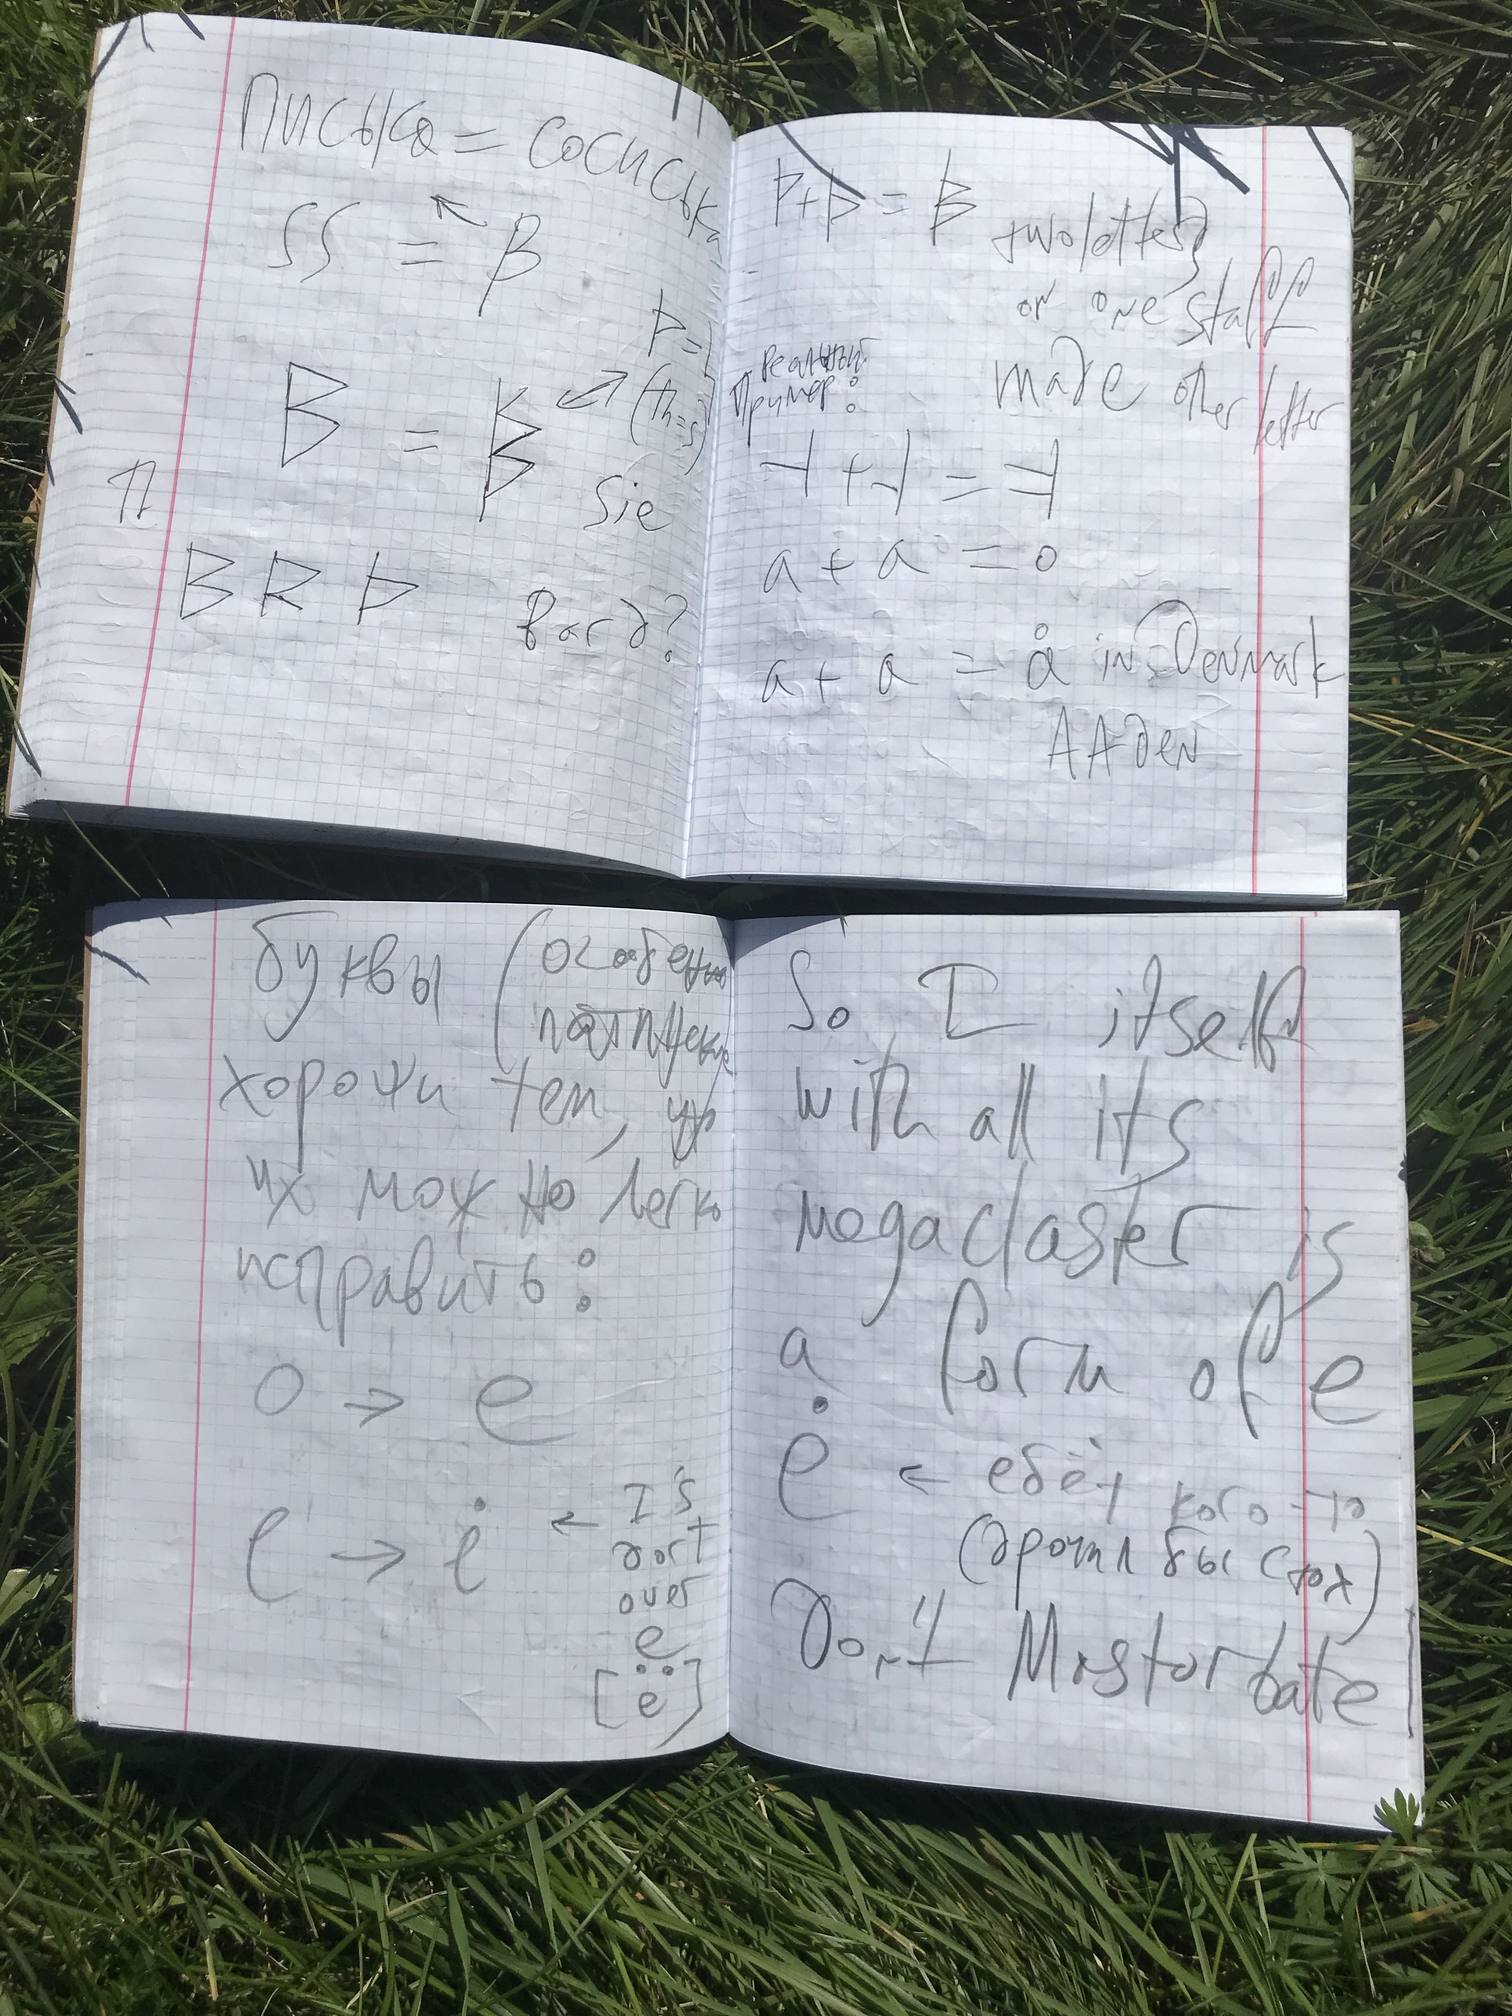 писька = сосиська
SS = β
þ =
(th=s)
B = ᛒ
Sie
п
B R Þ вагд?
þ+þ = ᛒ two letters
or one staff
made other letter
Реальный
пример:
+ =
a + a = o
a + a = å in Denmark
AAдen
буквы (особенно
латинские
хороши тем, что
их можно легко
исправить:
o → e
l → i ← I's
dort
over
e
[ë]
So I itself
with all its
megaclaster is
a form of e
ė ← ебёт кого-то
(дрочил бы стох)
Don't Mastorbate!